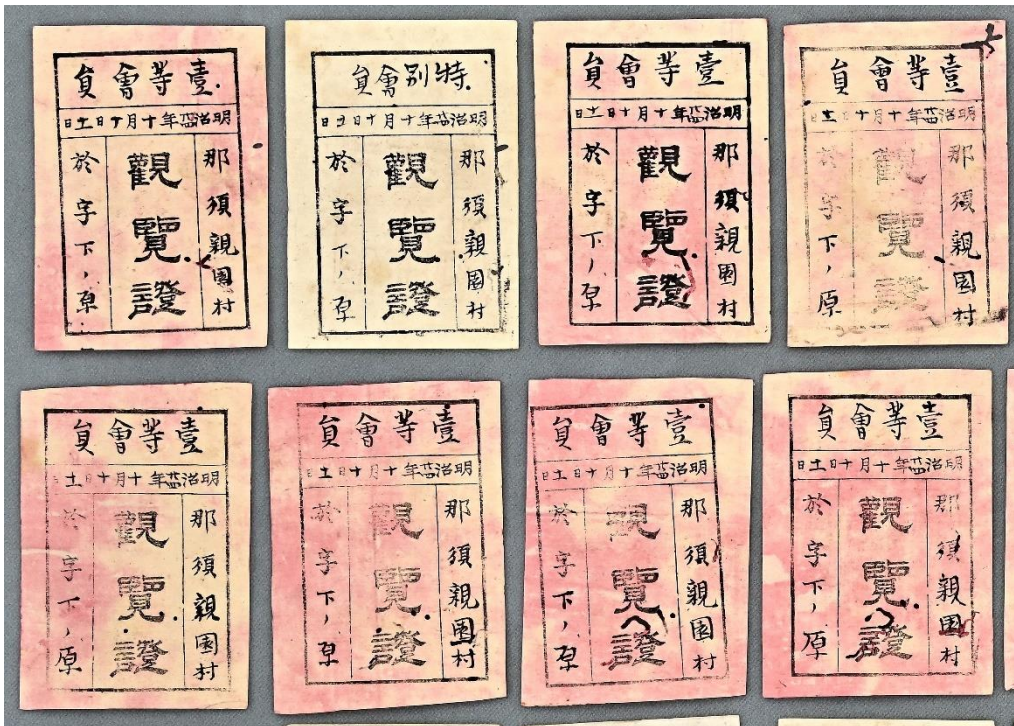 壹等會員
明治年十月十日十一日
那須親園村
觀覽證
於字下ノ原
特別會員
明治年十月十日十一日
那須親園村
觀覽證
於字下ノ原
壹等會員
明治年十月十日十一日
那須親園村
觀覽證
於字下ノ原
壹等會員
明治年十月十日十一日
那須親園村
觀覽證
於字下ノ原
壹等會員
明治年十月十日十一日
那須親園村
觀覽證
於字下ノ原
壹等會員
明治年十月十日十一日
那須親園村
觀覽證
於字下ノ原
壹等會員
明治年十月十日十一日
那須親園村
觀覽證
於字下ノ原
壹等會員
明治年十月十日十一日
那須親園村
觀覽證
於字下ノ原